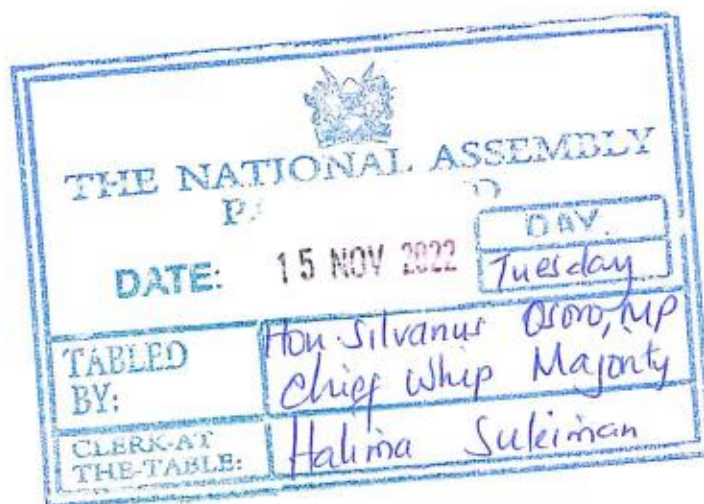 THE NATIONAL ASSEMBLY
DATE: 15 NOV 2022
DAY.
Tuesday
TABLED
BY:
Hon Silvanus Osoro, MP
Chief Whip Majority
CLERK-AT
THE-TABLE:
Halima Suleiman